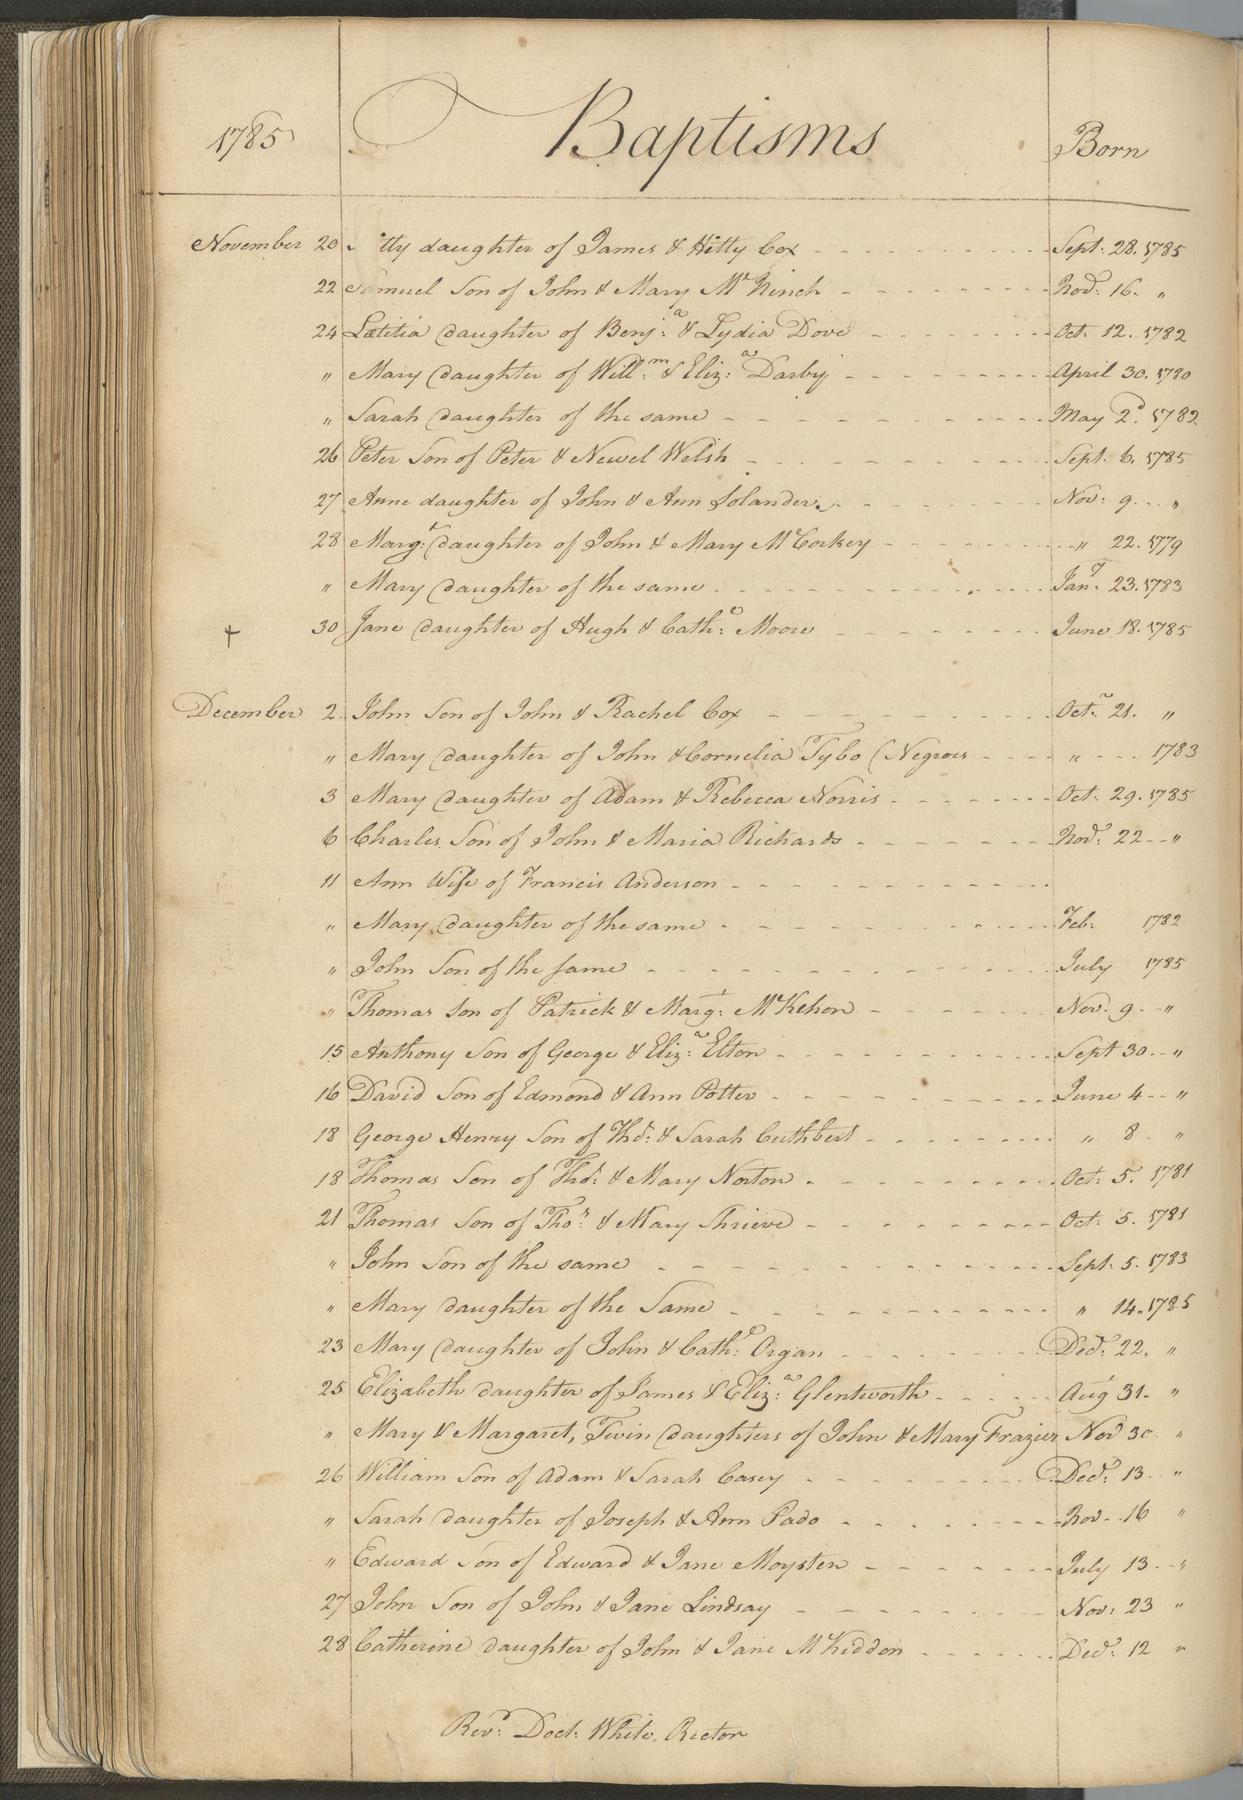 1785 Baptisms Born
November 20 tty daughter of James & Hitty Cox Sept: 28. 1785
22 Samuel Son of John & Mary McKinch Nov.r 16. "
24 Lætitia daughter of Benj:a & Lydia Dove Oct: 12. 1782
" Mary daughter of Will:m & Eliz:a Darby April 30. 1780
" Sarah daughter of the same May 2d 1782
26 Peter Son of Peter & Newel Welsh Sept. 6. 1785
27 Anne daughter of John & Ann Solander Nov: 9 "
28 Marg:t daughter of John & Mary McCorkey " 22. 1779
" Mary daughter of the same Jan:y 23. 1783
† 30 Jane daughter of Hugh & Cath:e Moore June 18. 1785
December 2 John Son of John & Rachel Cox Oct:r 21. "
" Mary daughter of John & Cornelia Tybo (Negroes " 1783
3 Mary daughter of Adam & Rebecca Norris Oct: 29. 1785
6 Charles Son of John & Maria Richards Nov:r 22 "
11 Ann Wife of Francis Anderson
" Mary daughter of the same Feb: 1782
" John Son of the same July 1785
" Thomas son of Patrick & Marg:t McKehon Nov. 9 "
15 Anthony Son of George & Eliz:a Elton Sept 30 "
16 David Son of Edmond & Ann Potter June 4 "
18 George Henry Son of Tho:s & Sarah Cuthbert " 8 "
18 Thomas Son of Tho:s & Mary Norton Oct: 5. 1781
21 Thomas Son of Tho:s & Mary Shrieve Oct: 5. 1781
" John Son of the same Sept: 5. 1783
" Mary daughter of the Same " 14. 1785
23 Mary daughter of John & Cath:e Organ Dec:r 22. "
25 Elizabeth daughter of James & Eliz:a Glentworth Aug 31. "
" Mary & Margaret, Twin daughters of John & Mary Frazier Nov 30 "
26 William Son of Adam & Sarah Casey Dec:r 13 "
" Sarah daughter of Joseph & Ann Pado Nov 16 "
" Edward Son of Edward & Jane Moysten July 13 "
27 John Son of John & Jane Lindsay Nov: 23 "
28 Catherine daughter of John & Jane McKeddon Dec:r 12 "
Rev:d Doct: White, Rector